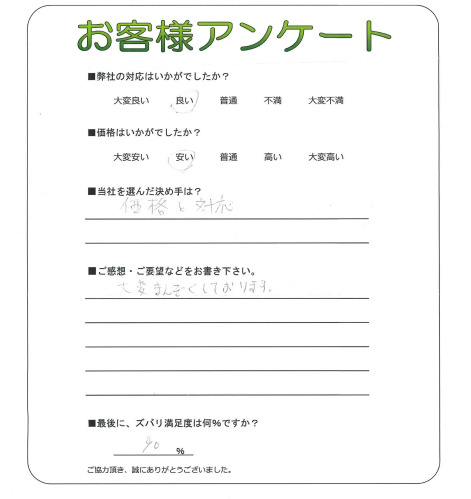 お客様アンケート
■弊社の対応はいかがでしたか？
大変良い 良い 普通 不満 大変不満
■価格はいかがでしたか？
大変安い 安い 普通 高い 大変高い
■当社を選んだ決め手は？
価格と対応
■ご感想・ご要望などをお書き下さい。
大変まんぞくしております。
■最後に、ズバリ満足度は何%ですか？
%
ご協力頂き、誠にありがとうございました。